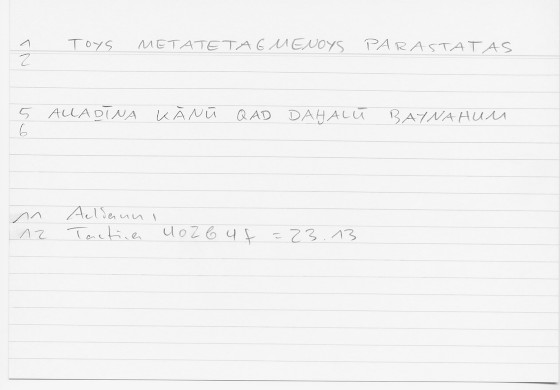 1 TOYS METATETAGMENOYS PARASTATAS
2
5 ALLAḎĪNA KĀNŪ QAD DAḪALŪ BAYNAHUM
6
11 Aeliani,
12 Tactica 402 6 4f = 23.13